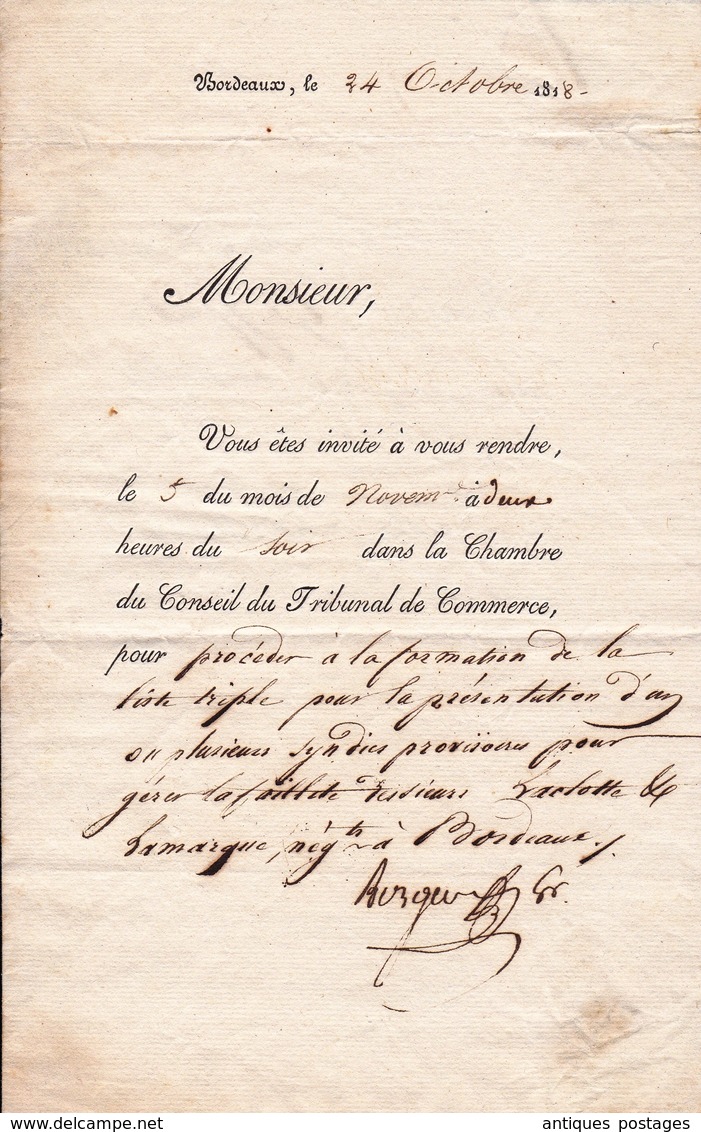 Bordeaux, le 24 Octobre 1818-
Monsieur,
Vous êtes invité à vous rendre,
le 5 du mois de Novem.re à deux
heures du soir dans la Chambre
du Conseil du Tribunal de Commerce,
pour procéder à la formation de la
liste triple pour la présentation d'un
ou plusieurs syndics provisoires pour
gérer la faillite des sieurs Laclotte &
Lamarque, nég.ts à Bordeaux./.
antiques postages